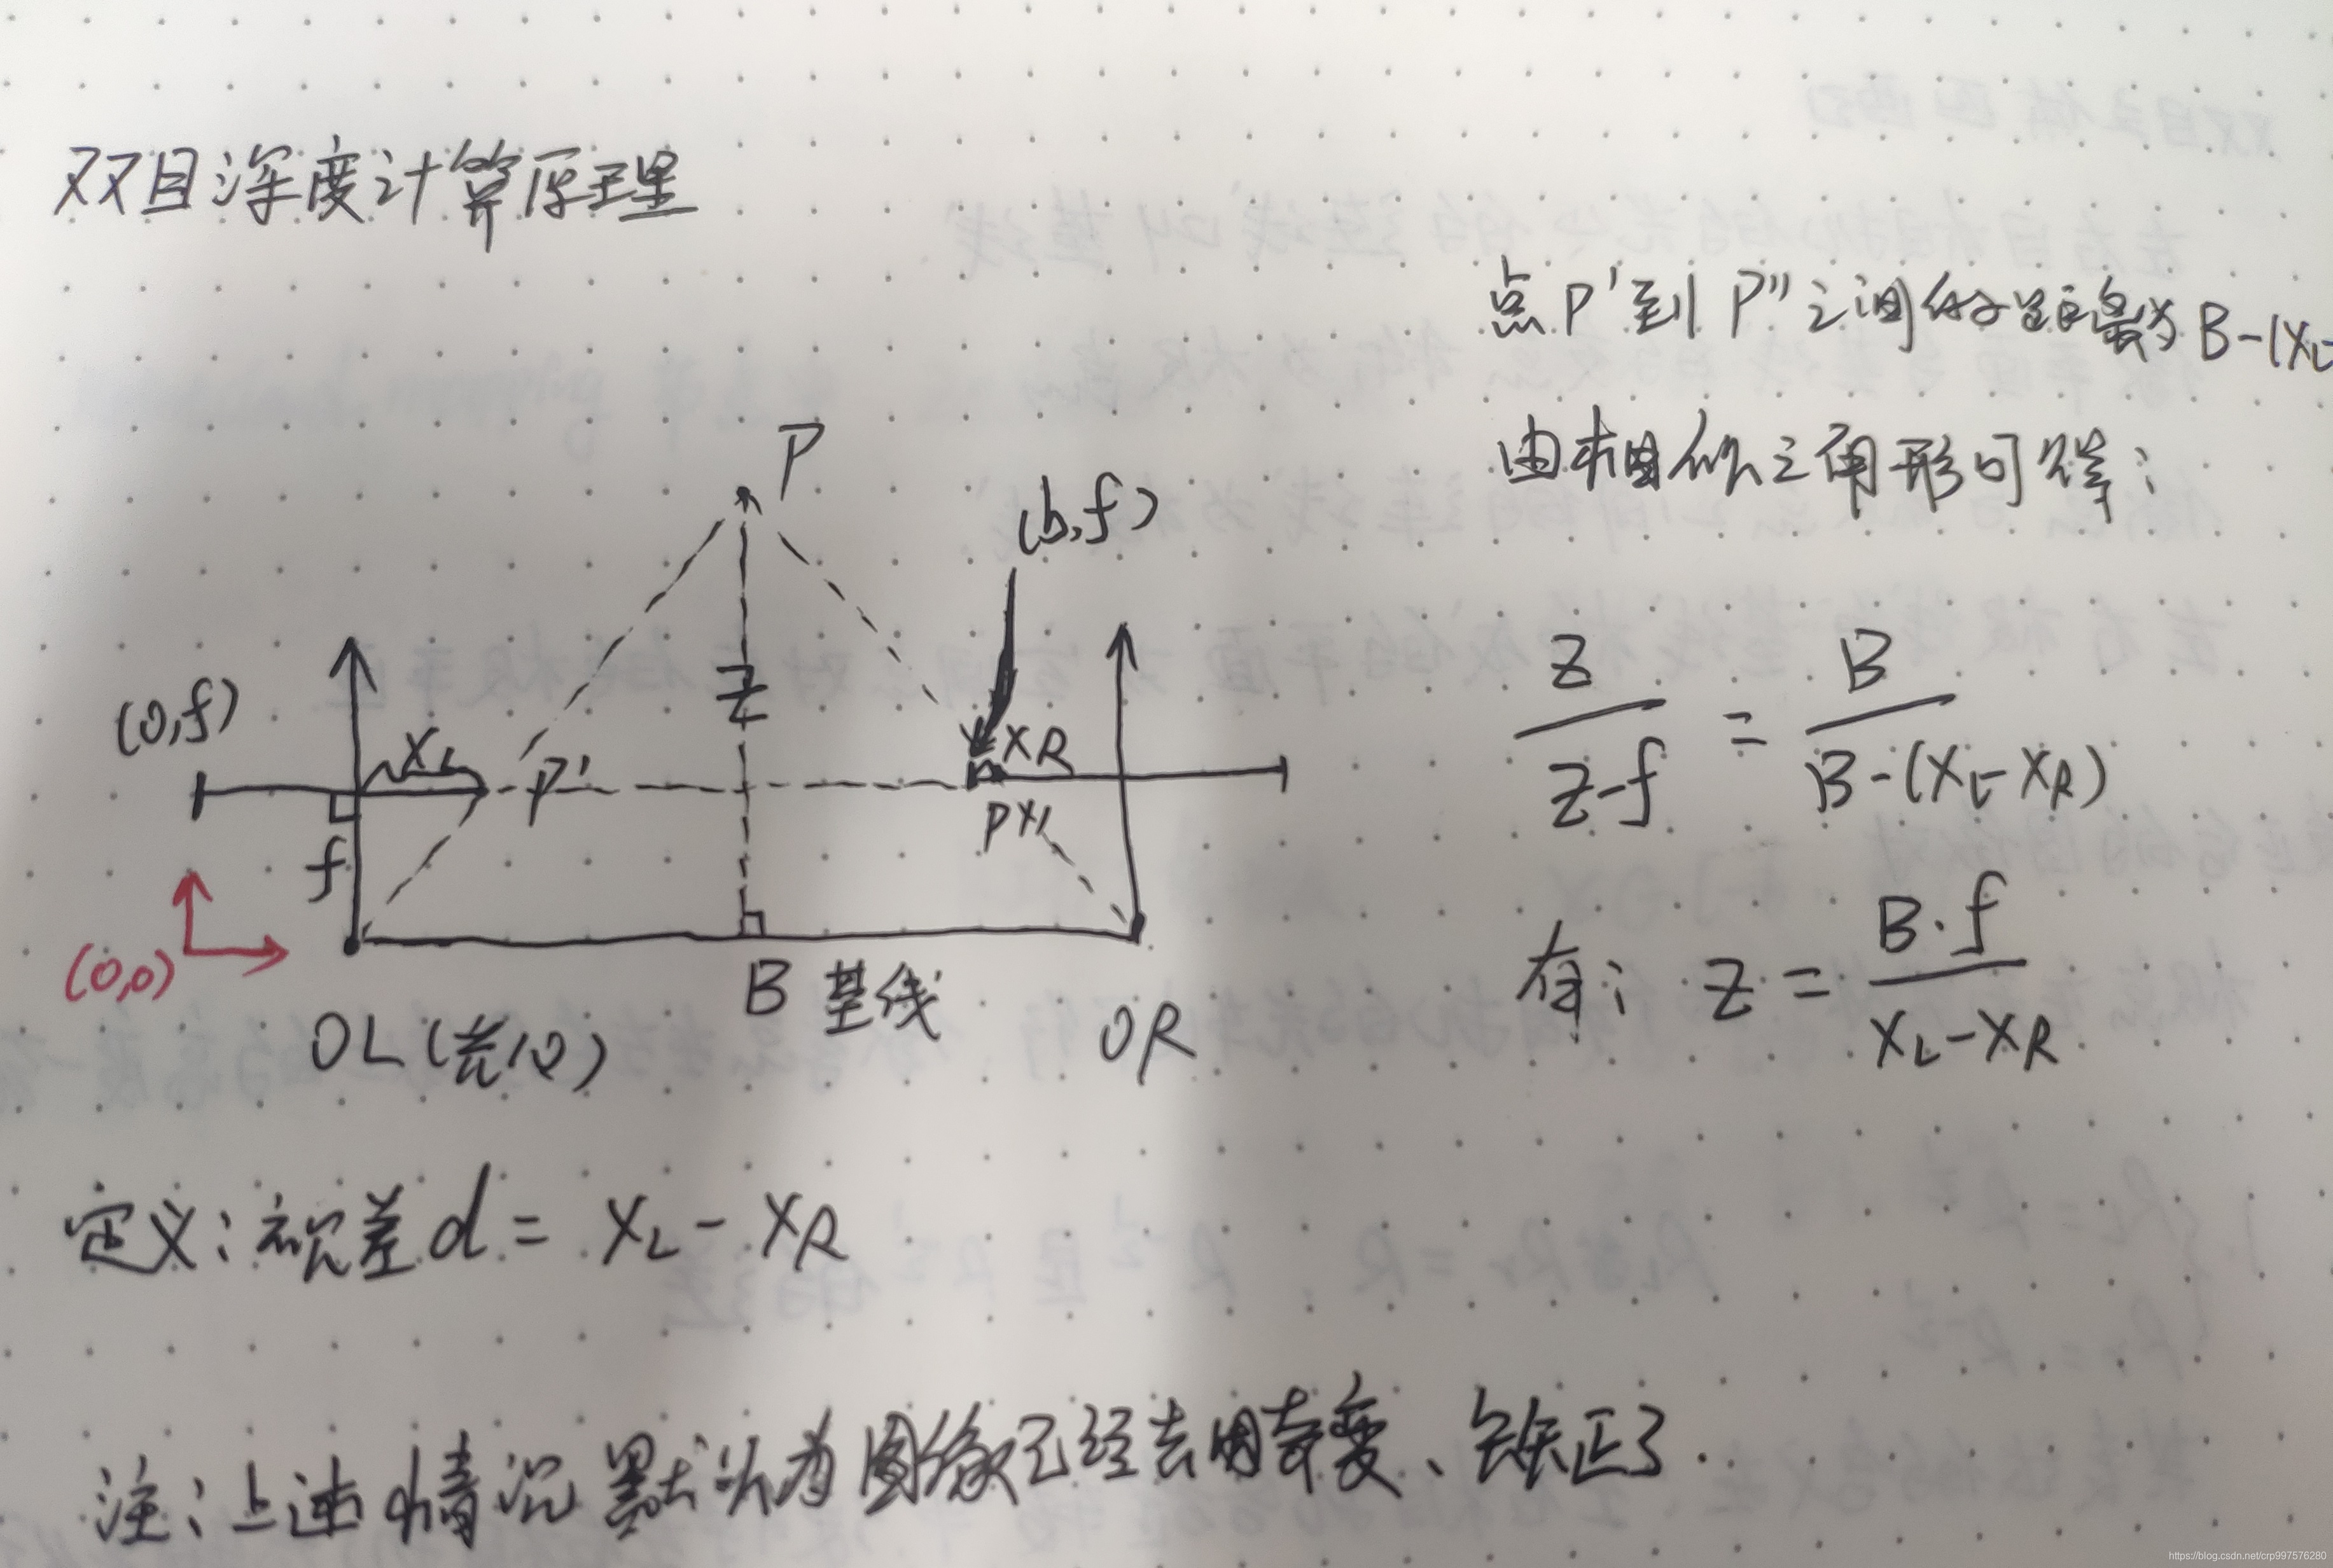 双目深度计算原理
点P'到P''之间的距离为B-(XL
由相似三角形可得:
P
(b,f)
Z
(0,f)
XL
XR
P'
P''
f
(0,0)
B 基线
OL(光心)
OR
Z/(Z-f) = B/(B-(XL-XR))
有: Z = B·f/(XL-XR)
定义:视差d = XL-XR
注:上述情况默认为图像已经去畸变、矫正了.
https://blog.csdn.net/crp997576280